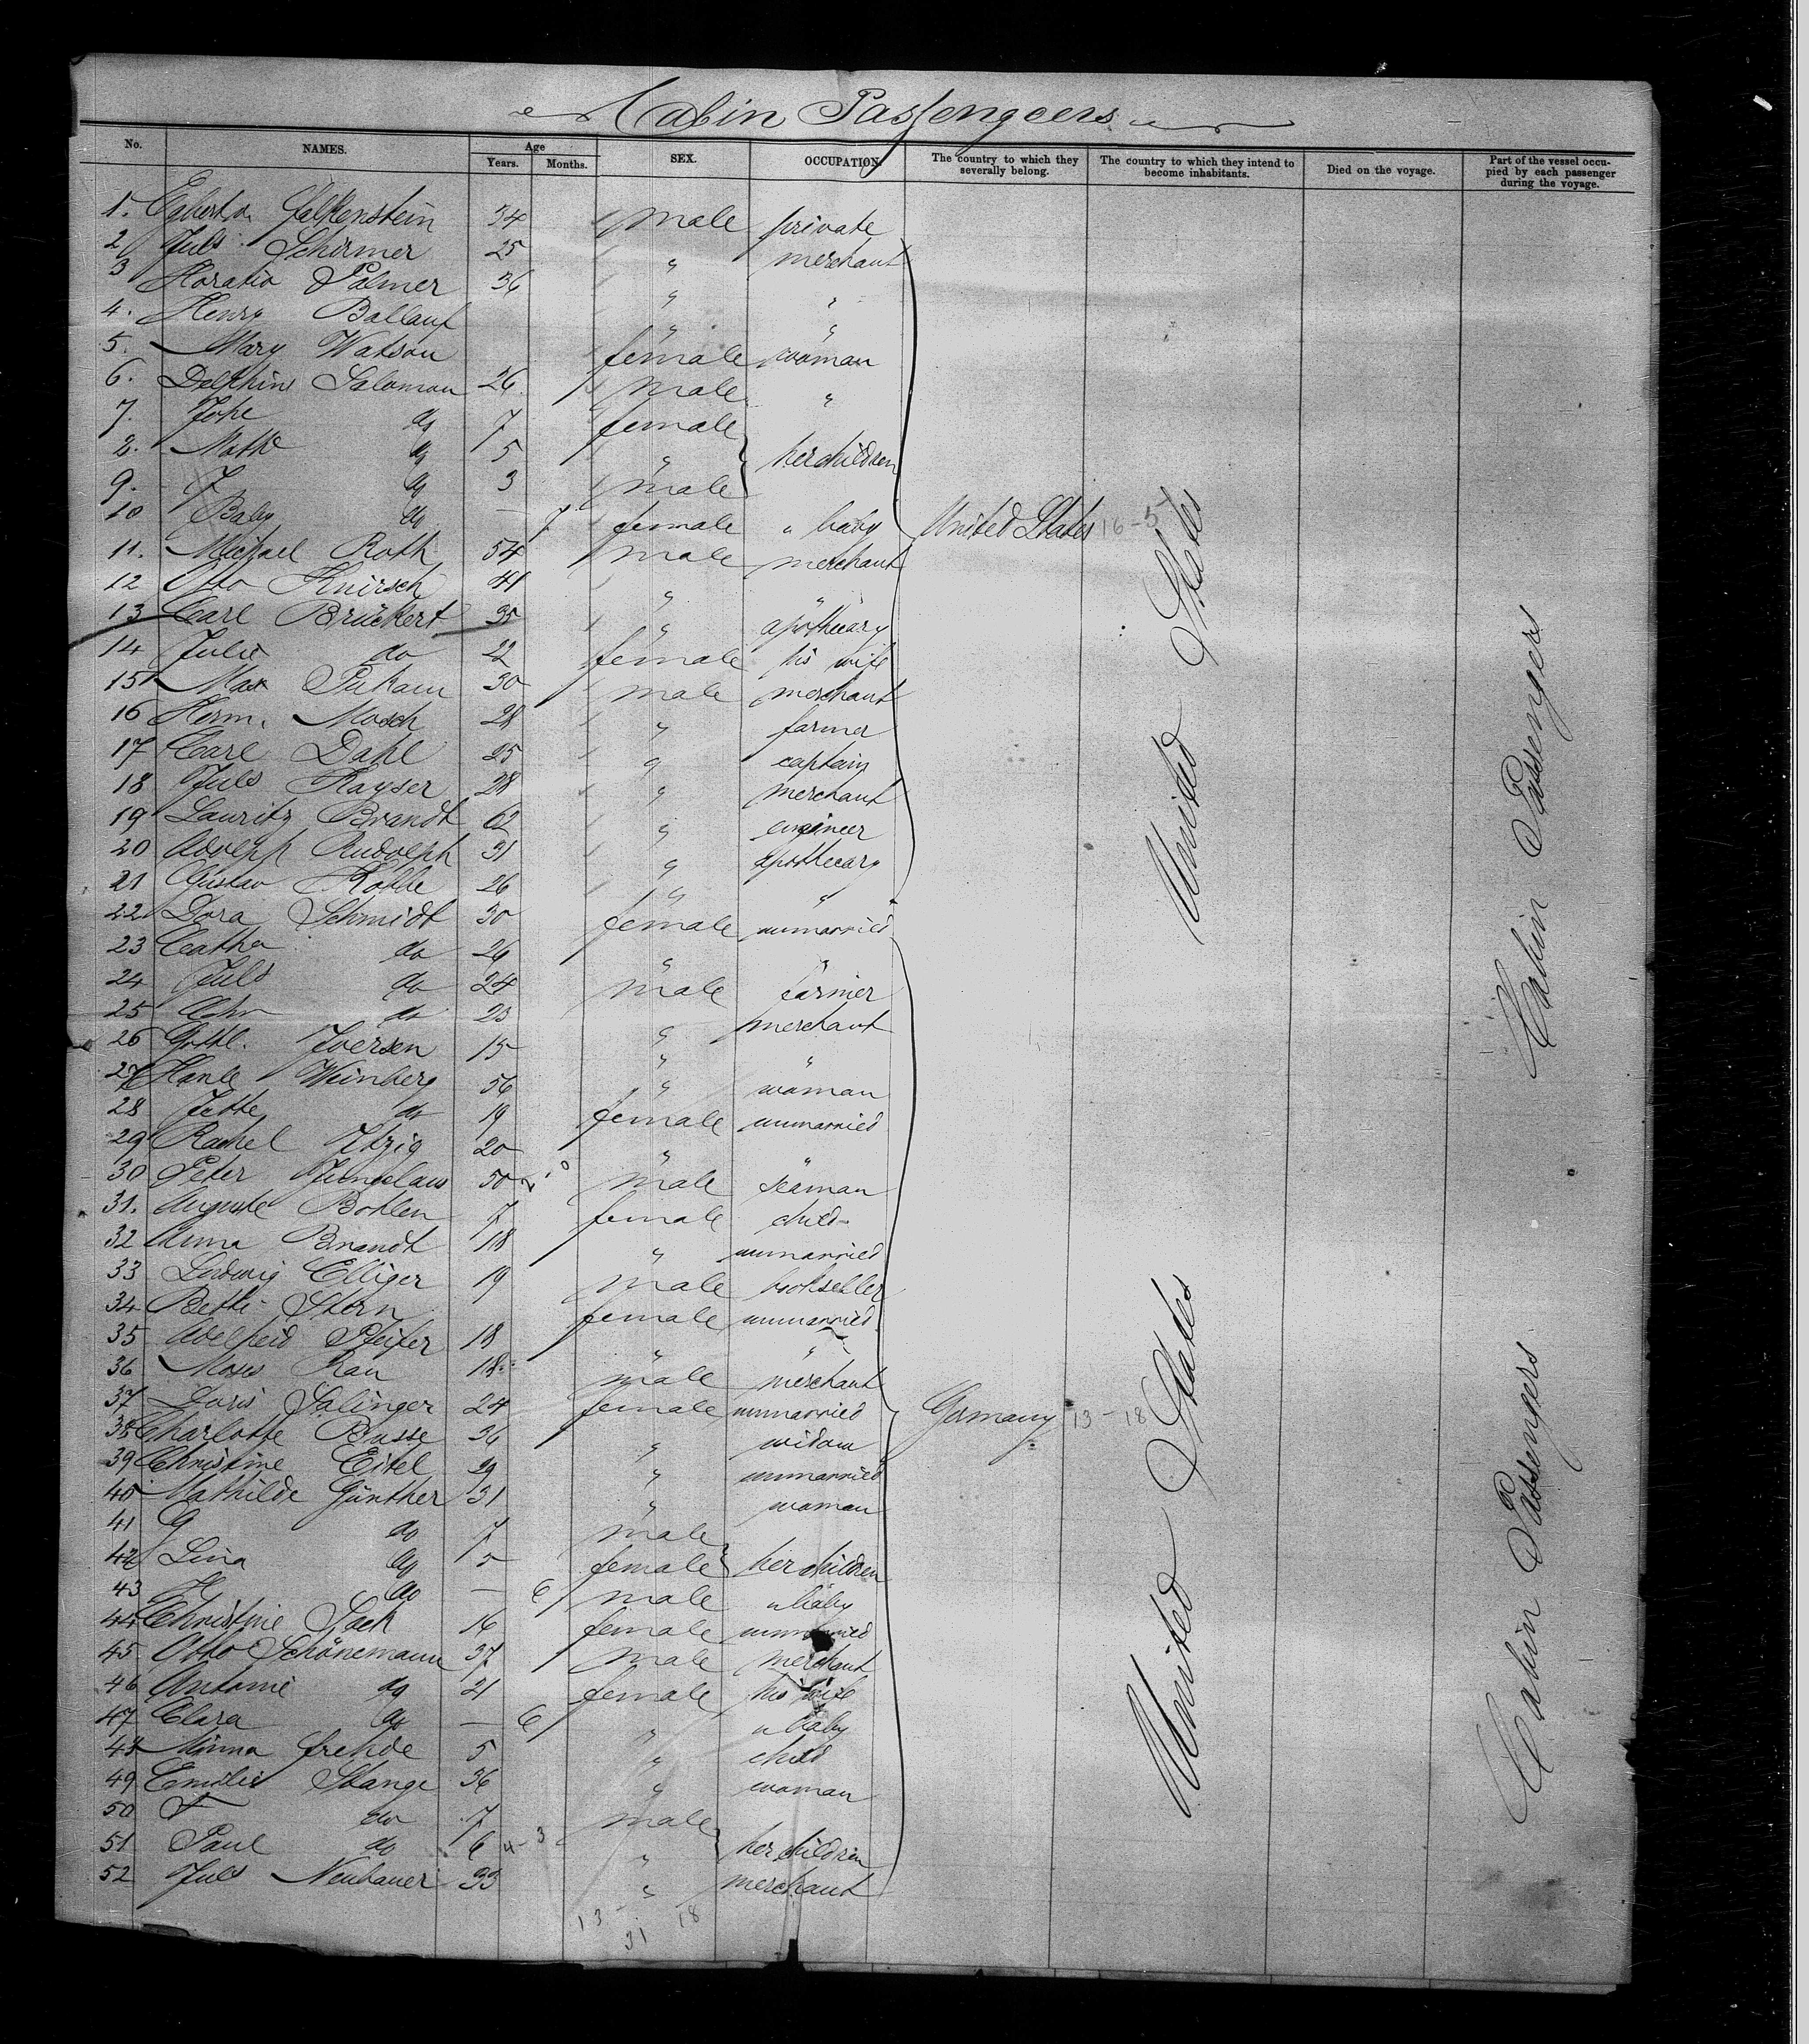 Cabin Passengeers
No. NAMES. Age SEX. OCCUPATION The country to which they severally belong. The country to which they intend to become inhabitants. Died on the voyage. Part of the vessel occupied by each passenger during the voyage.
Years. Months.
1. Falkenstein 34 male private
2 Juls Schirmer 25 " merchant
3 Horatio Palmer 36 " "
4. Henry Ballauf " "
5. Mary Watson female woman
6. Delphine Salomon 26 male "
7. do 7 female
8. do 5 " her children
9. J do 3 male
10 Baby do — 7 female " baby United States 16-5
11. Michael Roth 54 male merchant
12 Otto Knirsch 41 " "
13 Carl Brückert 35 " apothecary
14 Julie do 22 female his wife
15 Max 30 male merchant
16 Herm. Mosch 28 " farmer
17 Carl Dahl 25 " captain
18 Juls Kayser 28 " merchant
19 Lauritz Brandt 62 " engineer
20 Adolph Rudolph 31 " apothecary
21 Gustav Kothe 26 " "
22 Dora Schmidt 30 female unmarried
23 Catha do 26 " "
24 Juls do 24 male farmer
25 Chr do 23 " merchant
26 Gottl. Iversen 15 " "
27 Hanle Weinberg 56 " woman
28 Jette do 19 female unmarried
29 Rachel Itzig 20 " "
30 Peter Jungclaus 50 male seaman
31. Auguste Bohlen 7 female child
32 Anna Brandt 18 " unmarried
33 Ludwig Elliger 19 male bookseller
34 Bette Stern female unmarried
35 Adelheid Pfeifer 18 " "
36 Moses Rau 18 male merchant
37 Doris Salinger 24 female unmarried Germany 13-18
38 Charlotte Busse 36 " widow
39 Christine Eitel 29 " unmarried
40 Mathilde Günther 31 " woman
41 G do 7 male
42 Lina do 5 female her children
43 do — 6 male " baby
44 Christine Sack 16 female unmarried
45 Otto Schönemann 37 male merchant
46 Antonie do 21 female his wife
47 Clara do — 6 " " baby
48 Minna Frehde 5 " child
49 Emilie Stange 36 " woman
50 F do 7 male
51 Paul do 6 " her children
52 Juls Neubauer 33 " merchant
13 - 18
31
United States
United States
Cabin Passengers
Cabin Passengers